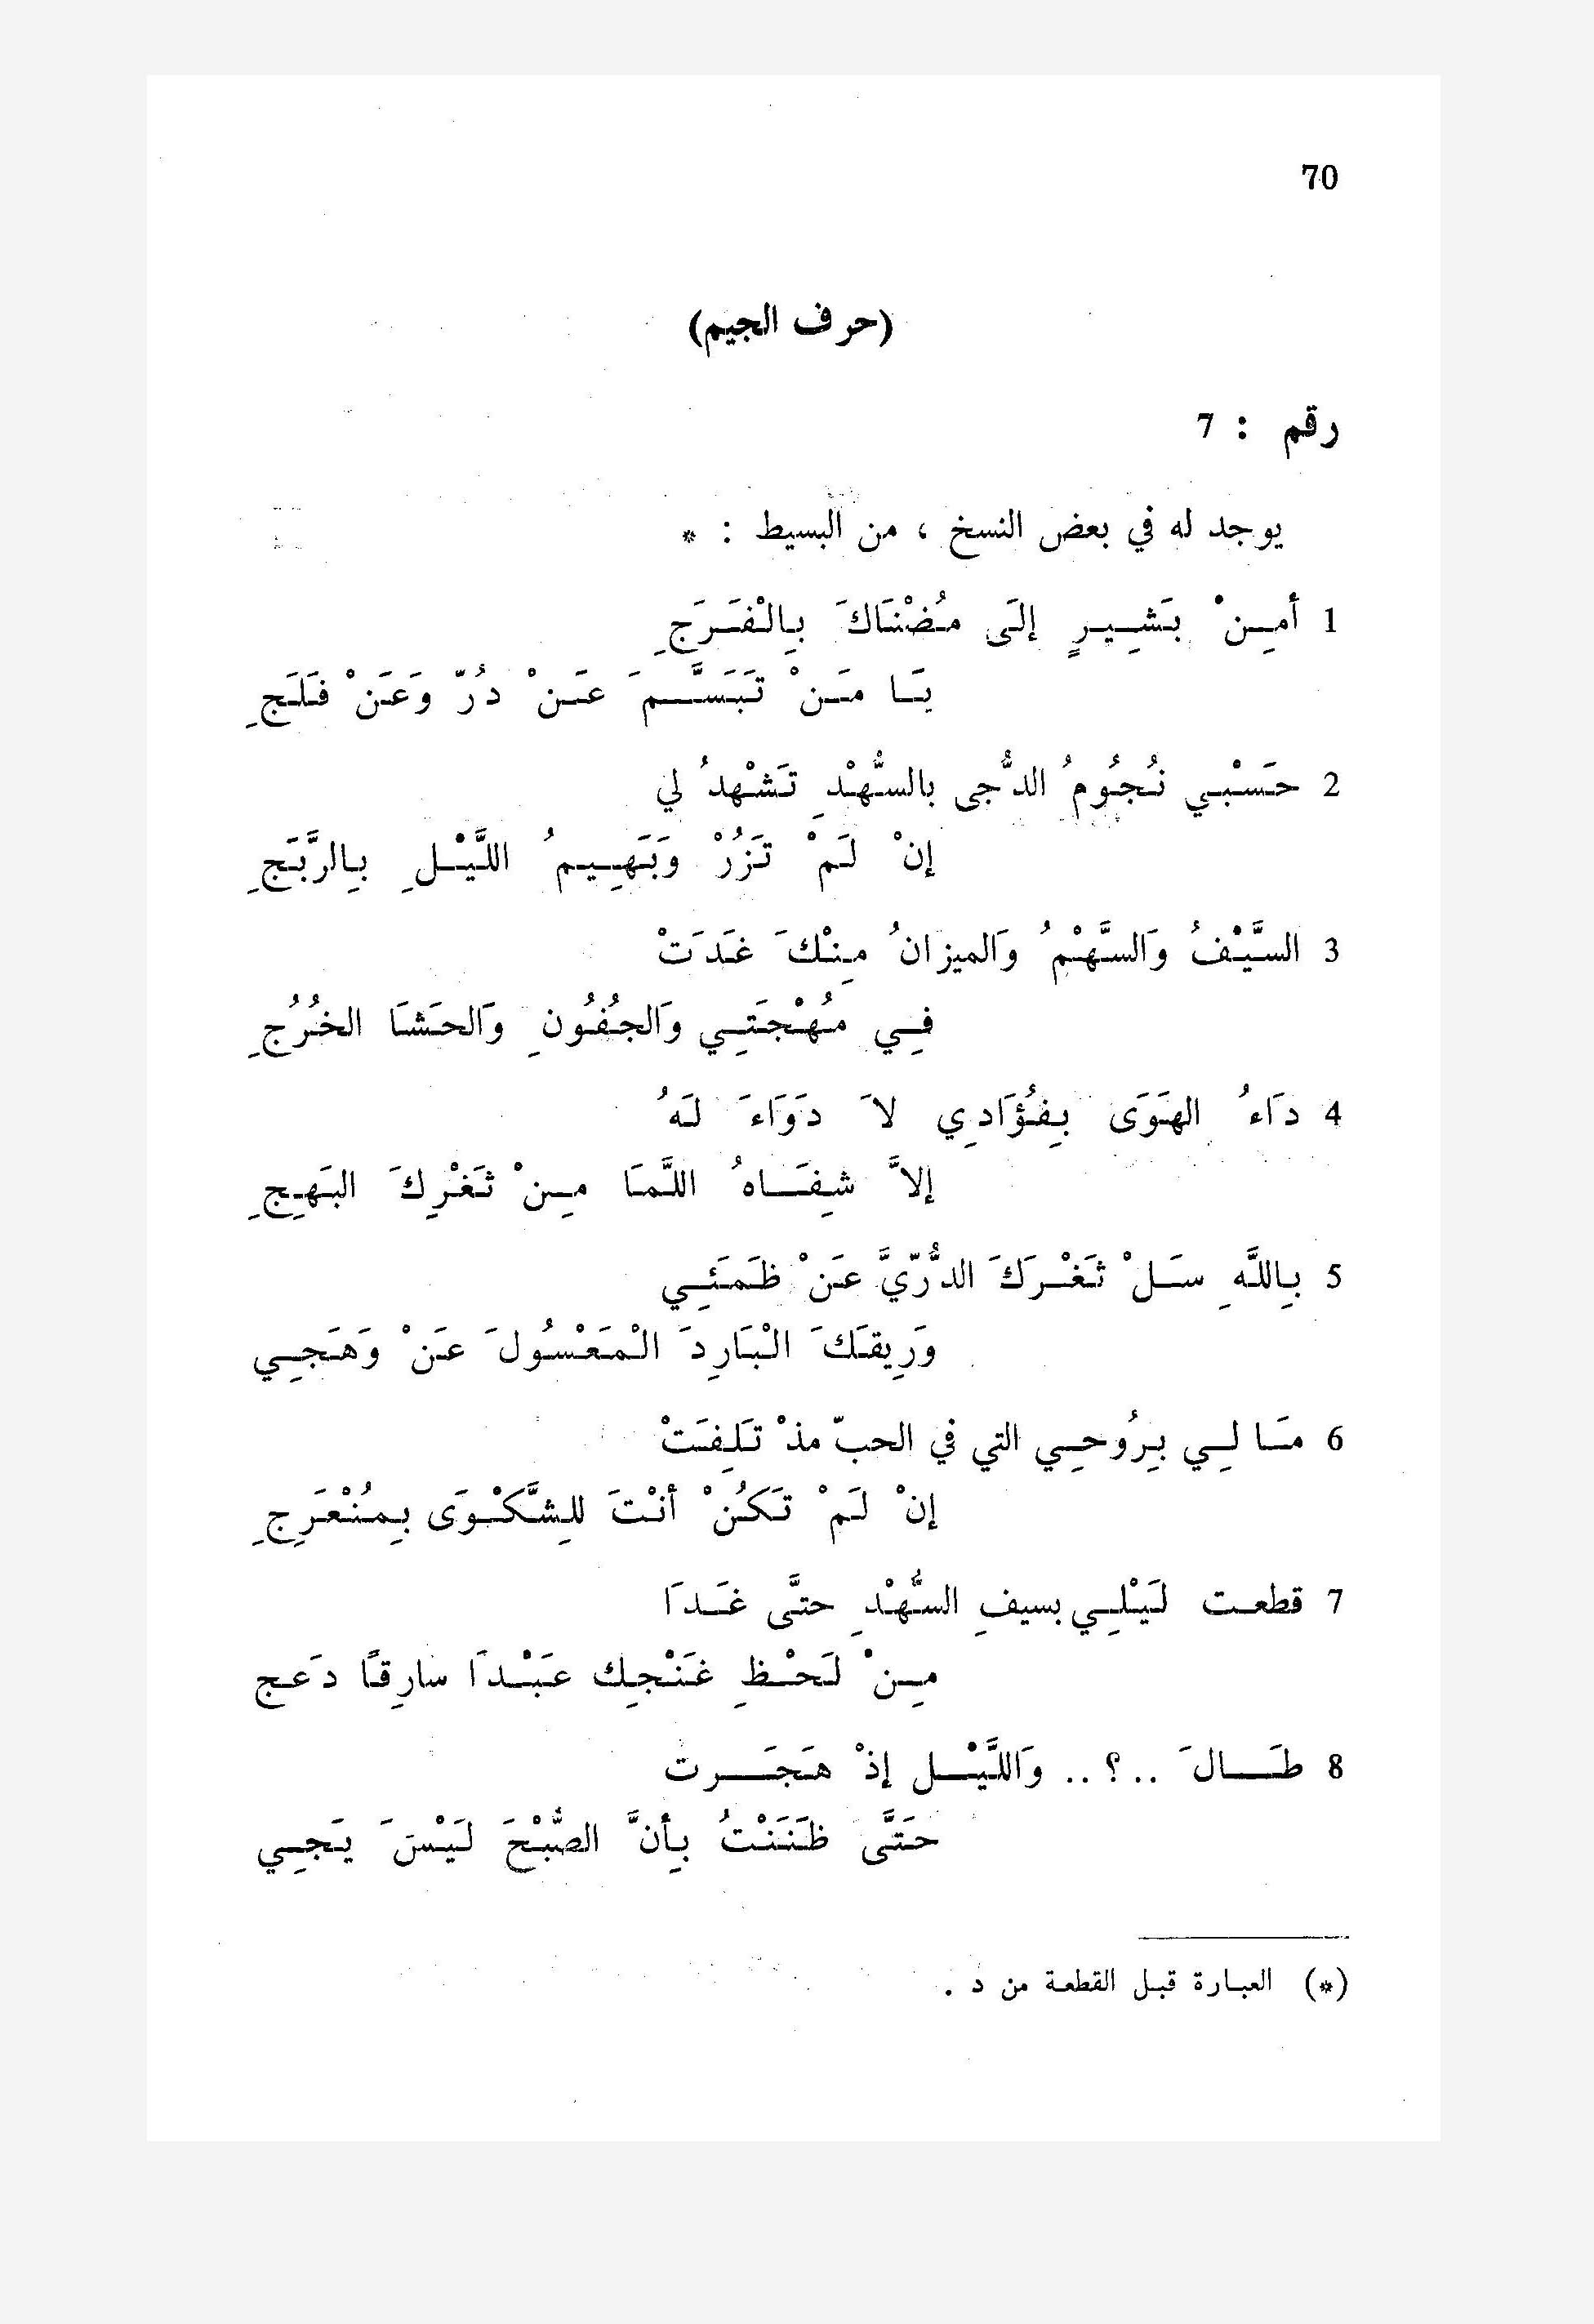 70
(حرف الجيم)
رقم : 7
يوجد له في بعض النسخ ، من البسيط : *
1 أمِنْ بَشِيرٍ إلَى مُضْنَاكَ بِالْفَرَجِ
يَا مَنْ تَبَسَّمَ عَنْ دُرّ وَعَنْ فَلَجِ
2 حَسْبِي نُجُومُ الدُّجى بالسُّهْدِ تَشْهدُ لي
إنْ لَمْ تَزُرْ وَبَهِيمُ اللَّيْلِ بِالرَّبَجِ
3 السَّيْفُ وَالسَّهْمُ وَالميزانُ مِنْكَ غَدَتْ
فِي مُهْجَتِي وَالجُفُونِ وَالحَشَا الخُرُجِ
4 دَاءُ الهَوَى بِفُؤَادِي لاَ دَوَاءَ لَهُ
إلاَّ شِفَاهُ اللَّمَا مِنْ ثَغْرِكَ البَهِجِ
5 بِاللَّهِ سَلْ ثَغْرَكَ الدُّرّيَّ عَنْ ظَمَئِي
وَرِيقَكَ الْبَارِدَ الْمَعْسُولَ عَنْ وَهَجِي
6 مَا لِي بِرُوحِي التي في الحبّ مذْ تَلِفَتْ
إنْ لَمْ تَكُنْ أنْتَ للِشَّكْوَى بِمُنْعَرِجِ
7 قطعت لَيْلِي بسيفِ السُّهْدِ حتَّى غَدَا
مِنْ لَحْظِ غَنْجِك عَبْدَا سارِقًا دَعج
8 طَالَ ..؟ .. وَاللَّيْل إذْ هَجَرت
حَتَّى ظَنَنْتُ بِأنَّ الصُّبْحَ لَيْسَ يَجِي
(*) العبارة قبل القطعة من د .